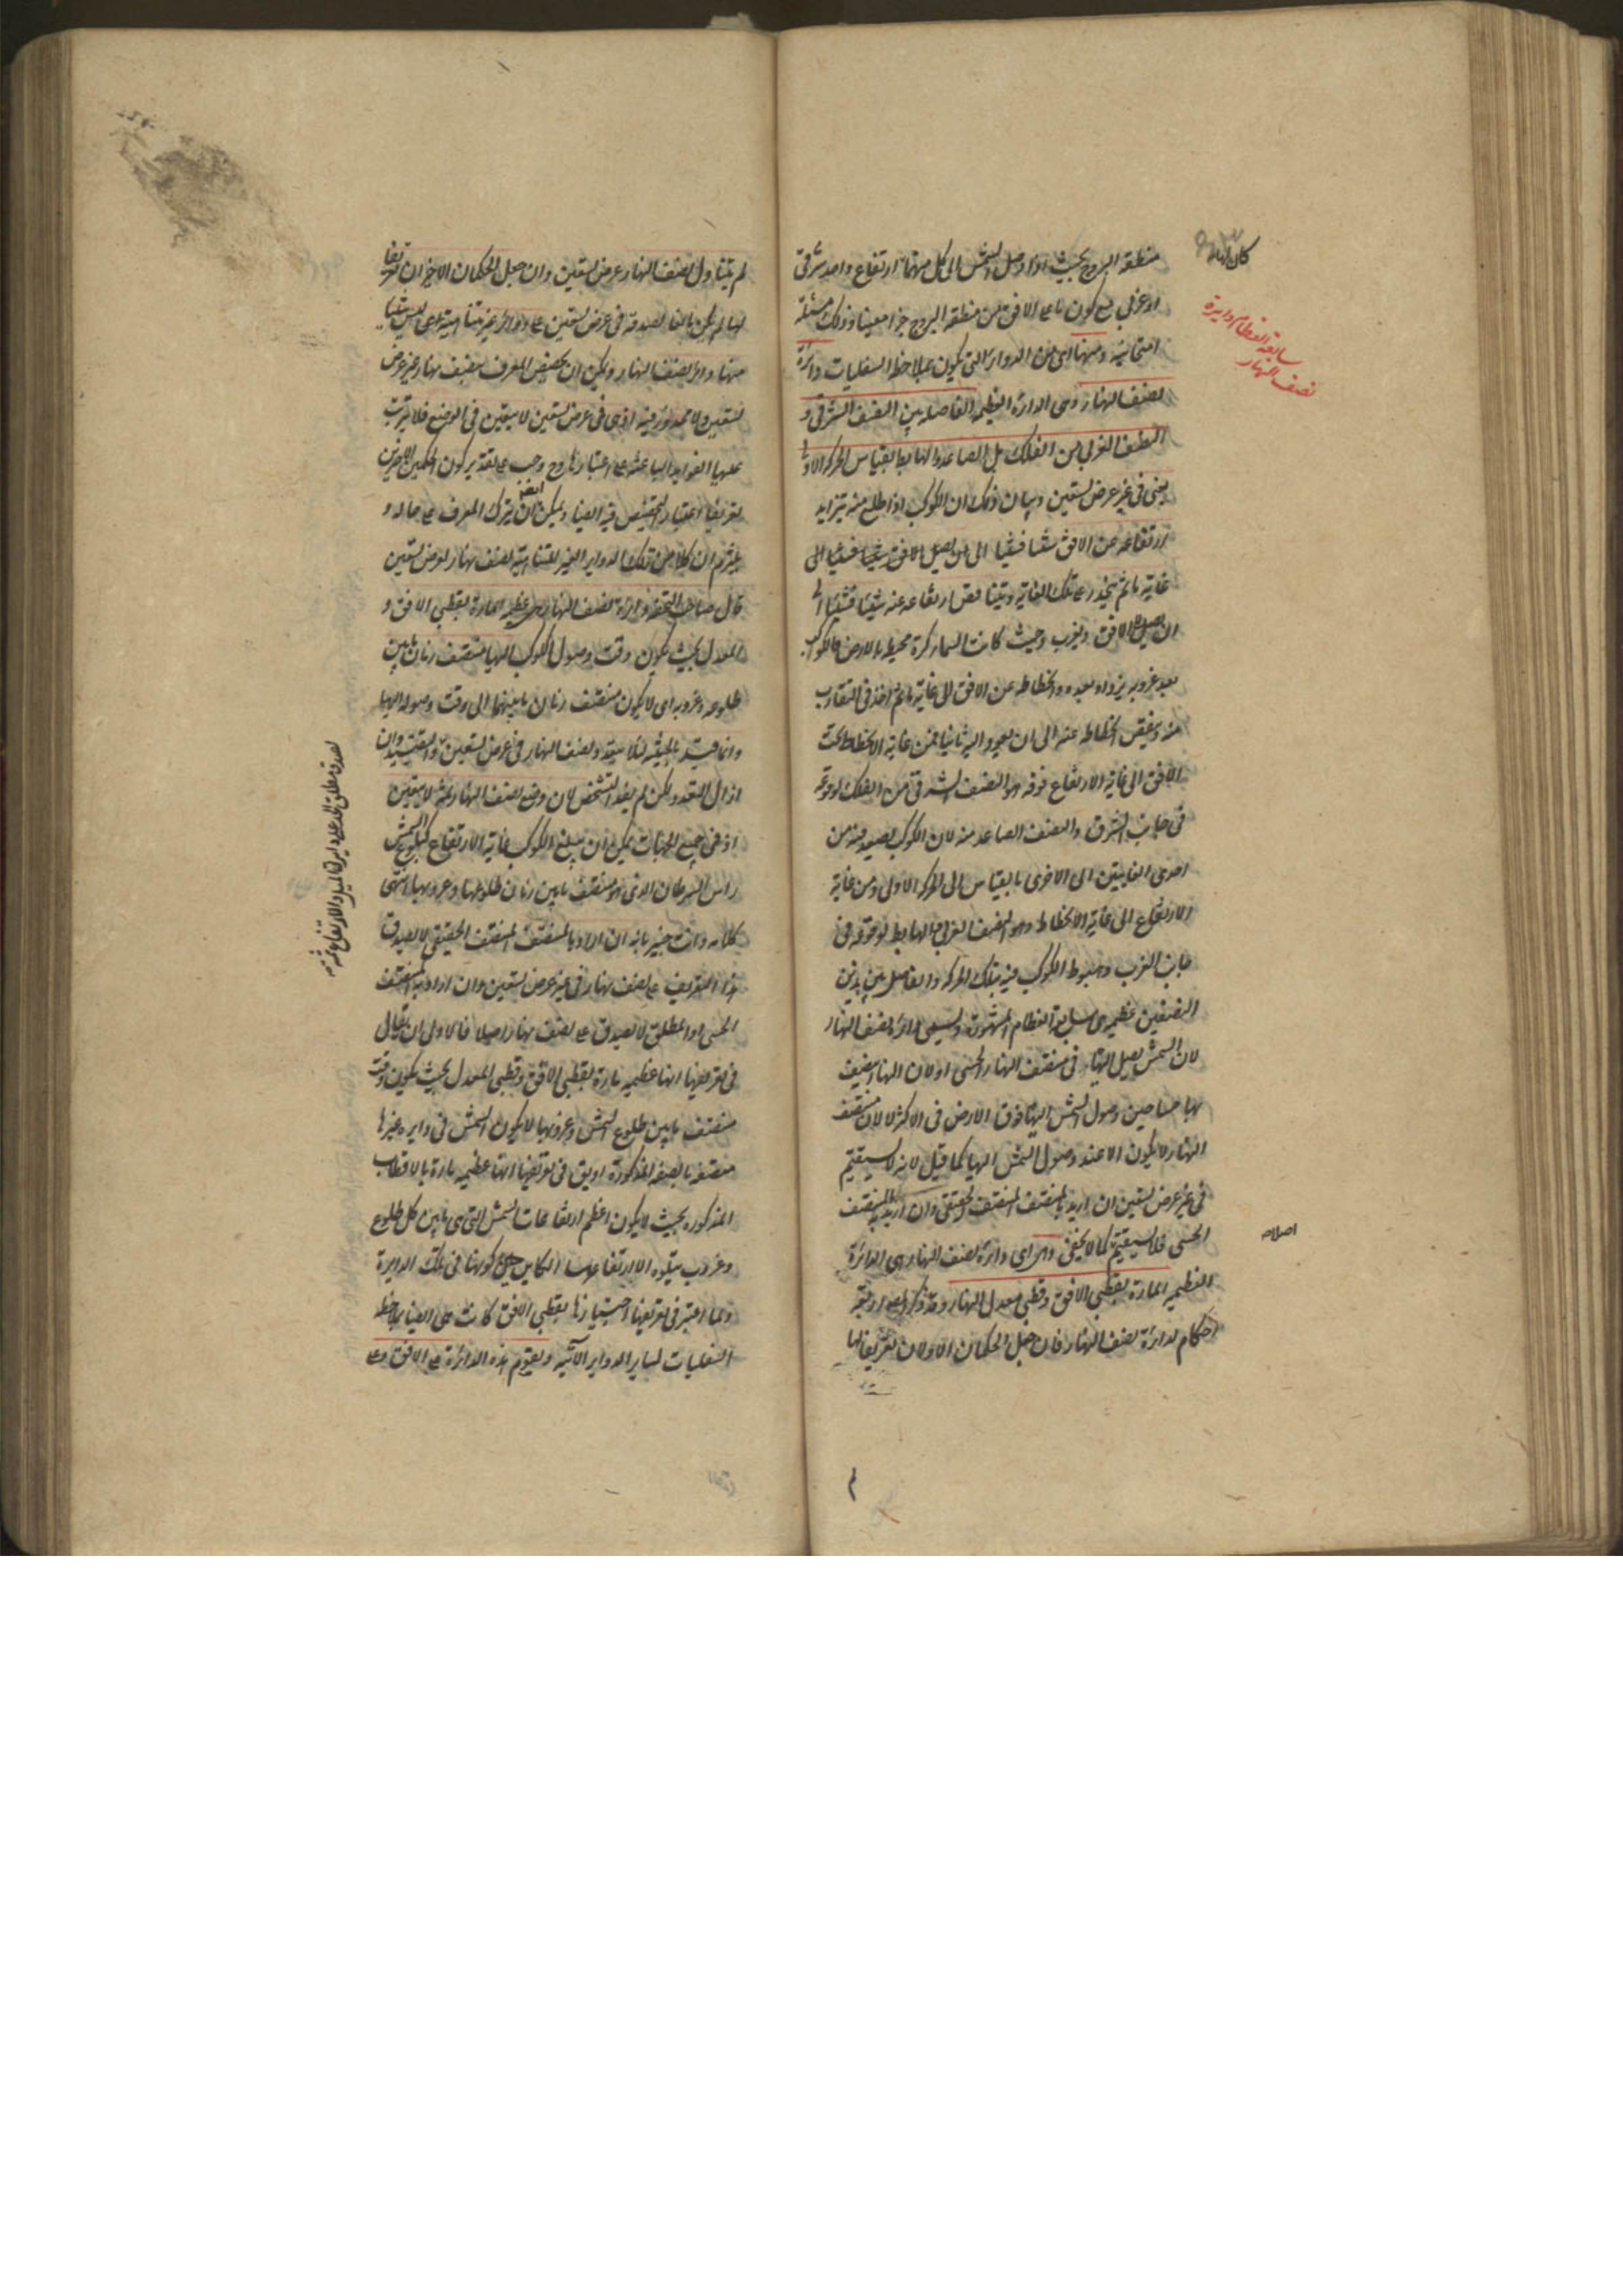 كان لها
منطقة البروج بحيث اذا وصل الشمس الى كل منهما ارتفاع واحد شرقى
او غربى مع كون ما على الافق من منطقة البروج جزا معينا وذلك مسئلة
سابعة العظام دايرة
نصف النهار
امتحانية ومنها اى من الدوائر التى يكون بملاحظة السفليات دائرة
نصف النهار وهى الدائرة العظيمة الفاصلة بين النصف الشرقى و
النصف الغربى من الفلك بل الصاعد والهابط بالقياس الى الحركة الاولى
يعنى فى غير عرض تسعين وبيان ذلك ان الكوكب اذا طلع منه يتزايد
ارتفاعه عن الافق شيئا فشيئا الى
غاية ما ثم ينحدر عن تلك الغاية ويتناقص ارتفاعه عنه شيئا فشيئا الى
ان يصل الافق ويغرب وحيث كانت السماء كرة محيطة بالارض فالكوكب
بعد غروبه يزداد بعده وانحطاطه عن الافق الى غاية ما ثم اخذ فى التقارب
منه وينقص انحطاطه عنه الى ان يعود اليه ثانيا فمن غاية الانحطاط تحت
الافق الى غاية الارتفاع فوقه هو النصف الشرقى من الفلك لوقوعه
فى جانب الشرق والنصف الصاعد منه لان الكوكب يصعد فيه من
احدى الغايتين الى الاخرى بالقياس الى الحركة الاولى ومن غاية
الارتفاع الى غاية الانحطاط وهو النصف الغربى والهابط لوقوعه فى
جانب الغرب وهبوط الكوكب فيه بتلك الحركة والفاصل بين هذين
النصفين عظيمة هى سابعة العظام المشهورة وتسمى دائرة نصف النهار
لان الشمس يصل اليها فى منتصف النهار الحسى او لان النهار ينتصف
بها حسا حين وصول الشمس اليها فوق الارض فى الاكثر لا لان منتصف
النهار لا يكون الا عند وصول الشمس اليها كما قيل لانه لا يستقيم
فى غير عرض تسعين ان اريد بالمنتصف المنتصف الحقيقى وان اريد به المنتصف
الحسى فلا يستقيم كما لا يخفى
اصلا
اى دائرة نصف النهار هى الدائرة
العظيمة المارة بقطبى الافق وقطبى معدل النهار وقد ذكر المص اربعة
احكام لدائرة نصف النهار فان جعل الحكمان الاولان تعريفا لها
لم يتناول نصف النهار عرض تسعين وان جعل الحكمان الاخيران تعريفا
لها لم يكن مانعا لصدقه فى عرض تسعين على دوائر غير متناهية ليس شيئا
منها دائرة نصف النهار ويمكن ان يخصص المعرف بنصف نهار غير عرض
تسعين ولا محذور فيه اذ هى فى عرض تسعين لا يتعين فى الوضع فلا يترتب
عليها الفوايد الباعثة على اعتبارها وح وجب على تقدير كون الحكمين الاخيرين
تعريفا اعتبار التخصيص فيه ايضا ويمكن ايضا ان يترك المعرف على حاله و
يلتزم ان كلا من تلك الدواير الغير المتناهية نصف نهار لعرض تسعين
قال صاحب التحفة ودائرة نصف النهار هى عظيمة المارة بقطبى الافق و
المعدل بحيث يكون وقت وصول الكوكب اليها منتصف زمان ما بين
طلوعه وغروبه اى لا يكون منتصف زمان ما بينهما الى وقت وصوله اليها
وانما قيد بالحيثية لئلا يتعدد نصف النهار فى عرض تسعين والتقييد وان
ازال التعدد ولكن لم يفد التشخص لان وضع نصف النهار ثمة لا يتعين
اذ فى جميع الجهات يمكن ان يبلغ الكوكب غاية الارتفاع كبلوغ الشمس
راس السرطان الذى هو منتصف ما بين زمان طلوعها وغروبها انتهى
كلامه وانت خبير بانه ان اراد بالمنتصف المنتصف الحقيقى لا يصدق
هذا التعريف على نصف نهار فى غير عرض تسعين وان اراد به المنتصف
الحسى او المطلق لا يصدق على نصف نهار اصلا فالاولى ان يقال
فى تعريفها انها عظيمة مارة بقطبى الافق وقطبى المعدل بحيث يكون وقت
منتصف ما بين طلوع الشمس وغروبها لا يكون الشمس فى دايرة غيرها
متصفة بالصفة المذكورة او يق فى تعريفها انها عظيمة مارة بالاقطاب
المذكورة بحيث لا يكون اعظم ارتفاعات الشمس التى هى ما بين كل طلوع
وغروب يتلوه الا ارتفاعها الكاين حين كونها فى تلك الدايرة
ولما اعتبر فى تعريفها اجتيازها بقطبى الافق كانت هى ايضا بملاحظة
السفليات لساير الدواير الآتية وتقوم هذه الدائرة على الافق وعلى